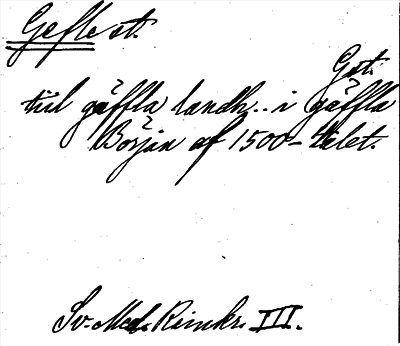 Gefle st.
Gst.
till gäffla landh.. i gäffla
Början af 1500-talet.
Sv. Med. Rimkr. III.